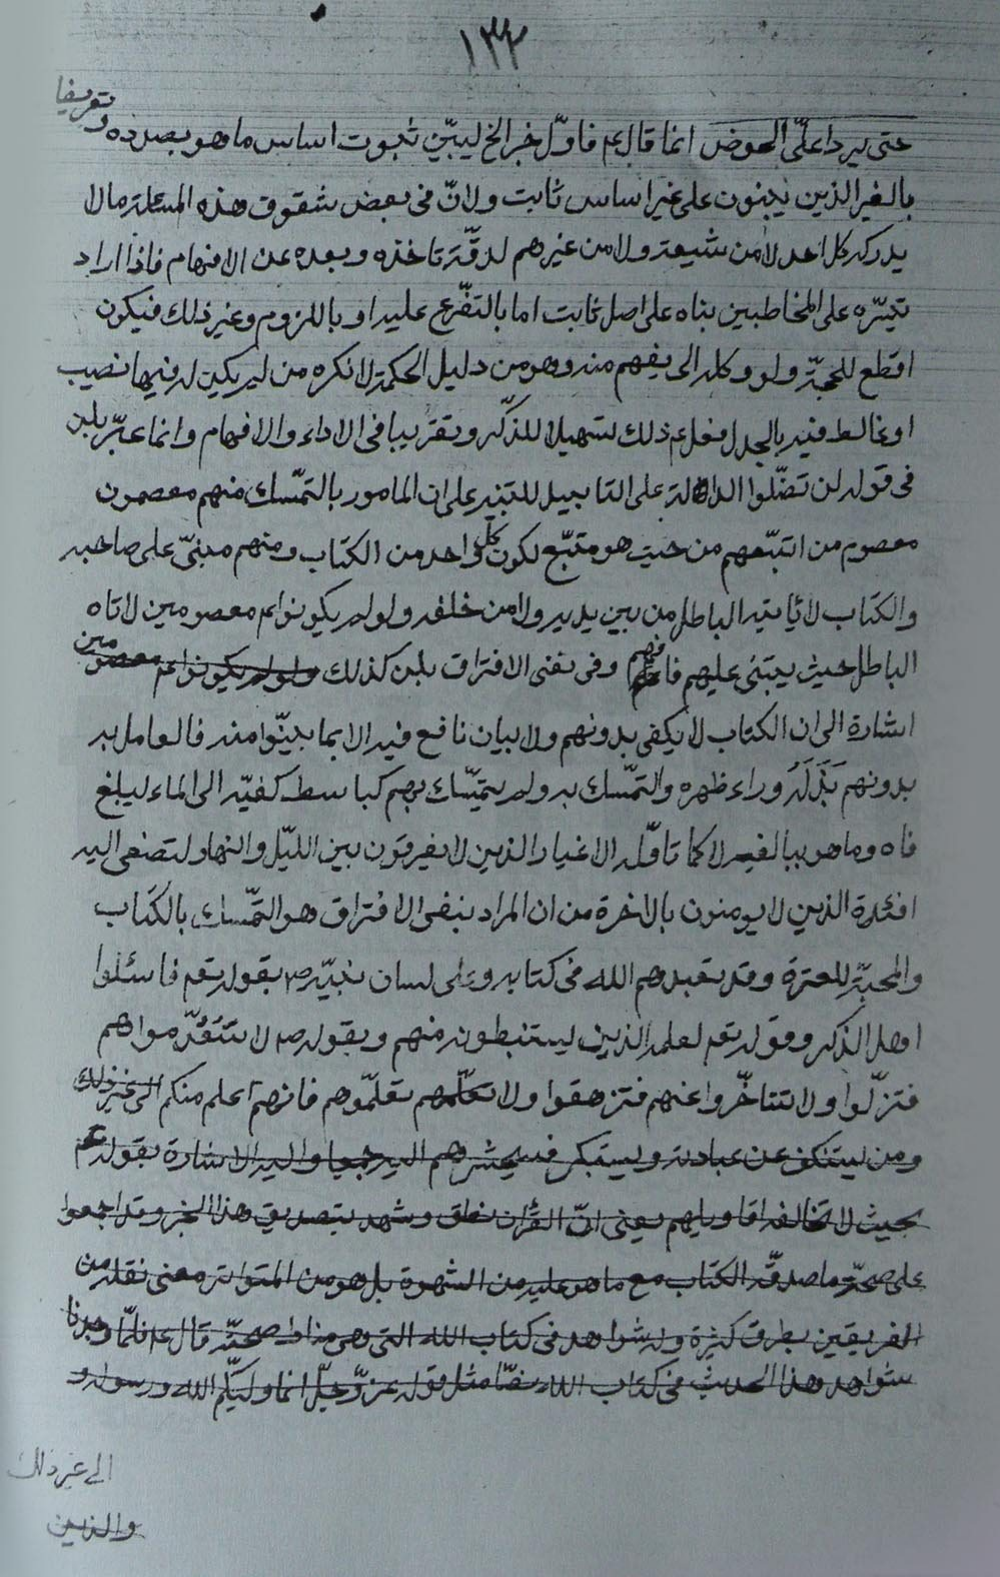 ١٣٢
وتعريضا
حتى يردا علىّ الحوض انما قال ع فاوّل خبر الخ ليبيّن ثبوت اساس ما هو بصدده
بالغير الذين يبنون على غير اساس ثابت ولانّ فى بعض شقوق هذه المسئلة ما لا
يدركه كل احد لا من شيعته ولا من غيرهم لدقّة ماخذه وبعده عن الافهام فاذا اراد
تيسّره على المخاطبين بناه على اصل ثابت اما بالتفرّع عليه او باللزوم وغير ذلك فيكون
اقطع للحجّة ولو وكله الى يفهم منه وهو من دليل الحكمة لانكره من لم يكن له فيها نصيب
او غالط فيه بالجدل ففعل ع ذلك تسهيلا للذكّر وتقريبا فى الاداء والافهام وانما عبّر بلن
فى قوله لن تضلّوا الدالة على التابيد للتنبيه على ان المامور بالتمسّك منهم معصومون
معصوم من اتبعهم من حيث هو متّبع لكون كلّ واحد من الكتاب ومنهم مبنىّ على صاحبه
والكتاب لا ياتيه الباطل من بين يديه ولا من خلفه ولو لم يكونوا ع معصومين لاتاه
الباطل حيث يبتنى عليهم فافهم وفى نفى الافتراق بلن كذلك ولو لم يكونوا ع معصومين
اشارة الى ان الكتاب لا يكفى بدونهم ولا بيان نافع فيه الا بما بيّنوا منه فالعامل به
بدونهم نبذ له وراء ظهره والتمّسك به ولم يتمسّك بهم كباسط كفيّه الى الماء ليبلغ
فاه وما هو ببالغه لا كما تاوّله الاغيار الذين لا يفرقون بين الليّل والنهار ولتصغى اليه
افئدة الذين لا يومنون بالاخرة من ان المراد بنفى الافتراق هو التمّسك بالكتاب
والمحبّة للعترة وقد تعبدهم الله فى كتابه وعلى لسان نبيّه ص بقوله تع فاسئلوا
اهل الذكر وقوله تع لعلمه الذين يستنبطونه منهم وبقوله ص لا تتقدّموا هم
فتزلّوا ولا تتاخّروا عنهم فتزهقوا ولا تعلّموهم فانهم اعلم منكم الى غير ذلك
ومن يستنكف عن عبادته ويستكبر فسيحشرهم اليه جميعا واليه الاشارة بقوله ع
بحيث لا تخالفه اقاويلهم يعنى انّ القرآن نطق وشهد بتصديق هذا الخبر وقد اجمعوا
على صحّة ما صدقّه الكتاب مع ما هو عليه من الشهرة بل هو من المتواتر معنى نقله من
الفريقين بطرق كثيرة وله شواهد فى كتاب الله التى هى مناط صحّته قال ع فلمّا وجدنا
شواهد هذا الحديث فى كتاب الله نصّا مثل قوله عزّ وجلّ انما وليكّم الله ورسوله و
الى غير ذلك
والذين